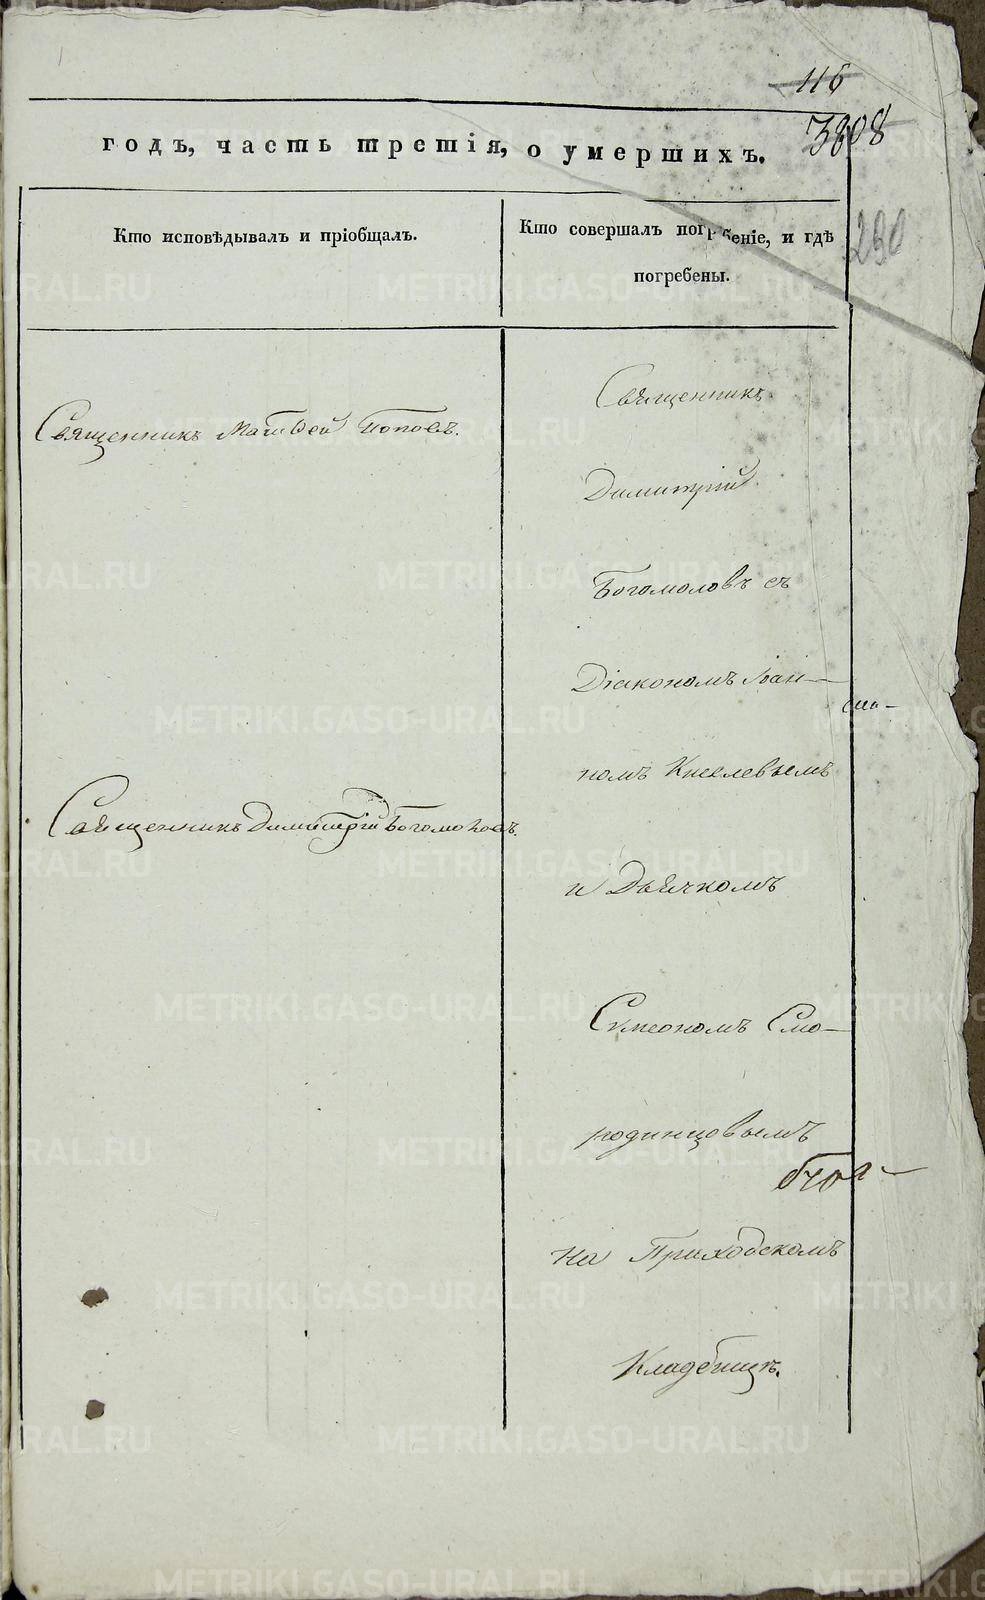 116
3808
годъ, часть третія, о умершихъ.
290
Кто исповѣдывалъ и пріобщалъ.
Кто совершалъ погребеніе, и гдѣ
погребены.
Священникъ Матѳей Поповъ.
Священникъ Димитрій Богомоловъ.
Священникъ
Димитрій
Богомоловъ съ
Діакономъ Іоан-
номъ Киселевымъ
и Дьячкомъ
Сѵмеономъ Смо-
родинцовымъ
на Приходскомъ
Кладбищѣ.
METRIKI.GASO-URAL.RU